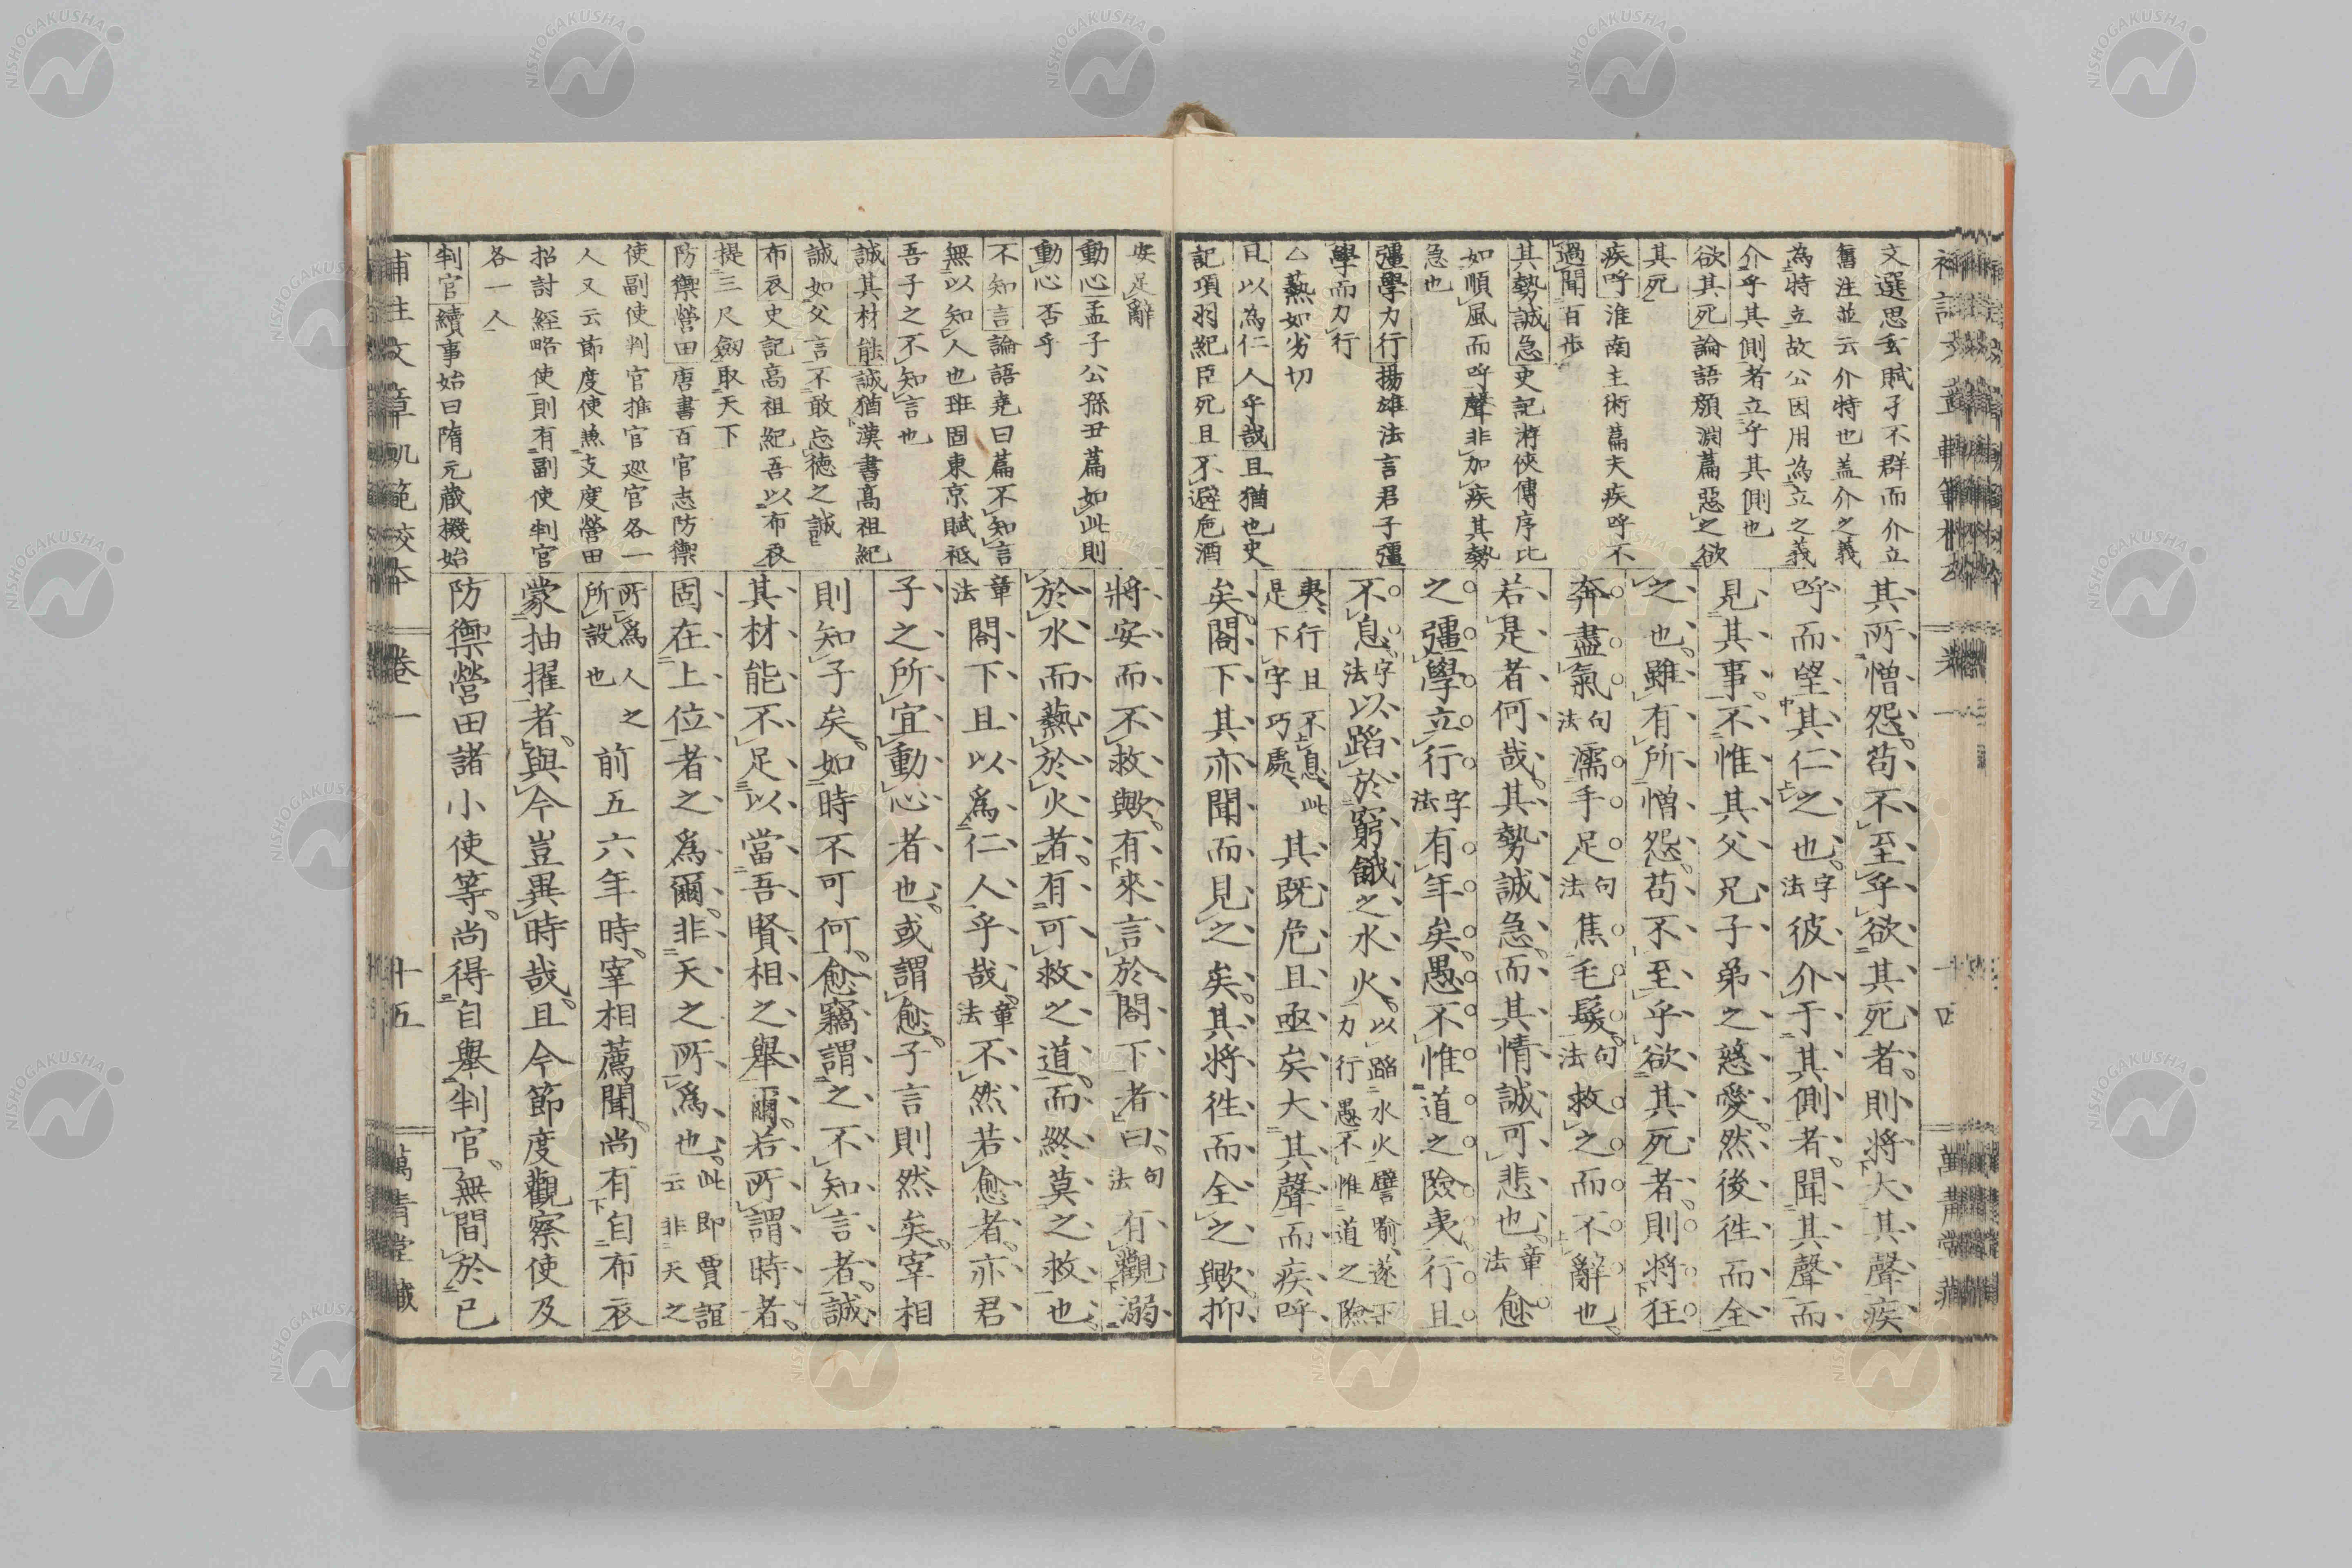 文選思玄賦孑不群而介立
舊注並云介特也盖介之義
為特立故公因用為立之義
介乎其側者立乎其側也
欲其死論語顏淵篇惡之欲
其死
疾呼淮南主術篇夫疾呼不
過聞百步
其勢誠急史記游俠傳序比
如順風而呼聲非加疾其勢
急也
彊學力行揚雄法言君子彊
學而力行
△爇如劣切
且以為仁人乎哉且猶也史
記項羽紀臣死且不避巵酒
其所憎怨。苟不至乎欲其死者。則將大其聲疾
呼而望其仁之也。字法彼介于其側者。聞其聲而
見其事。不惟其父兄子弟之慈愛。然後徃而全
之也。雖有所憎怨。苟不至乎欲其死者。則將狂
奔盡氣句法濡手足句法焦毛髮。句法救之而不辭也。
若是者何哉。其勢誠急。而其情誠可悲也。章法愈
之彊學立行字法有年矣。愚不惟道之險夷。行且
不息字法以蹈於窮餓之水火。以蹈水火譬喻遂下力行愚不惟道之險
夷、行且不息、此是下字巧處、其既危且亟矣大其聲而疾呼
矣。閤下其亦聞而見之矣。其將徃而全之歟抑
安足辭
動心孟子公孫丑篇如此則
動心否乎
不知言論語堯曰篇不知言
無以知人也班固東京賦祗
吾子之不知言也
誠其材能誠猶漢書髙祖紀
誠如父言不敢忘德之誠
布衣史記高祖紀吾以布衣
提三尺劔取天下
防禦營田唐書百官志防禦
使副使判官推官巡官各一
人又云節度使兼支度營田
招討経略使則有副使判官
各一人
判官續事始曰隋元藏機始
將安而不救歟。有來言於閤下者。曰。句法有觀溺
於水而爇於火者。有可救之道。而終莫之救也。
章法閤下且以爲仁人乎哉。章法不然若愈者。亦君
子之所宜動心者也。或謂愈。子言則然矣。宰相
則知子矣。如時不可何。愈竊謂之不知言者。誠
其材能不足以當吾賢相之舉爾。若所謂時者。
固在上位者之爲爾。非天之所爲也。此即賈誼云非天之
所爲人之所設也 前五六年時。宰相薦聞。尚有自布衣
蒙抽擢者。與今豈異時哉。且今節度觀察使及
防禦營田諸小使等。尚得自舉判官。無間於已
補註文章軌範校本 卷一 十五 萬青堂藏